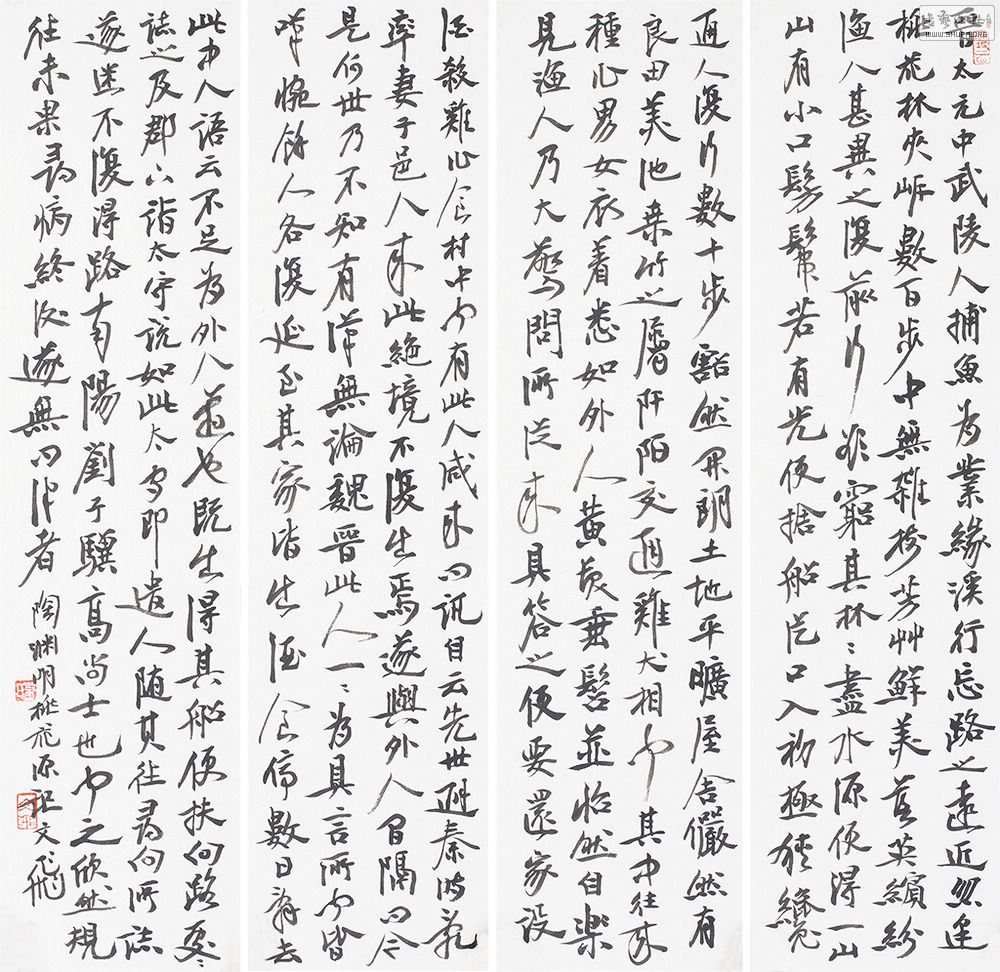 晋太元中武陵人捕魚为業緣溪行忘路之遠近忽逢
桃花林夾岸數百步中無雜樹芳艸鮮美落英繽紛
漁人甚異之復前行欲窮其林〻盡水源便得一山
山有小口髣髴若有光便捨船從口入初極狹纔
通人復行數十步豁然開朗土地平曠屋舍儼然有
良田美池桑竹之屬阡陌交通雞犬相聞其中往來
種作男女衣着悉如外人黃髮垂髫並怡然自樂
見漁人乃大驚問所從來具答之便要還家設
酒殺雞作食村中聞有此人咸來問訊自云先世避秦時亂
率妻子邑人來此絕境不復出焉遂與外人間隔問今
是何世乃不知有漢無論魏晉此人一〻為具言所聞皆
嘆惋餘人各復延至其家皆出酒食停數日辭去
此中人語云不足為外人道也既出得其船便扶向路處〻
誌之及郡下詣太守說如此太守即遣人随其往尋向所誌
遂迷不復得路南陽劉子驥高尚士也聞之欣然規
往未果尋病終後遂無問津者 陶渊明桃花源記文飛
WWW.SHUFA.ORG